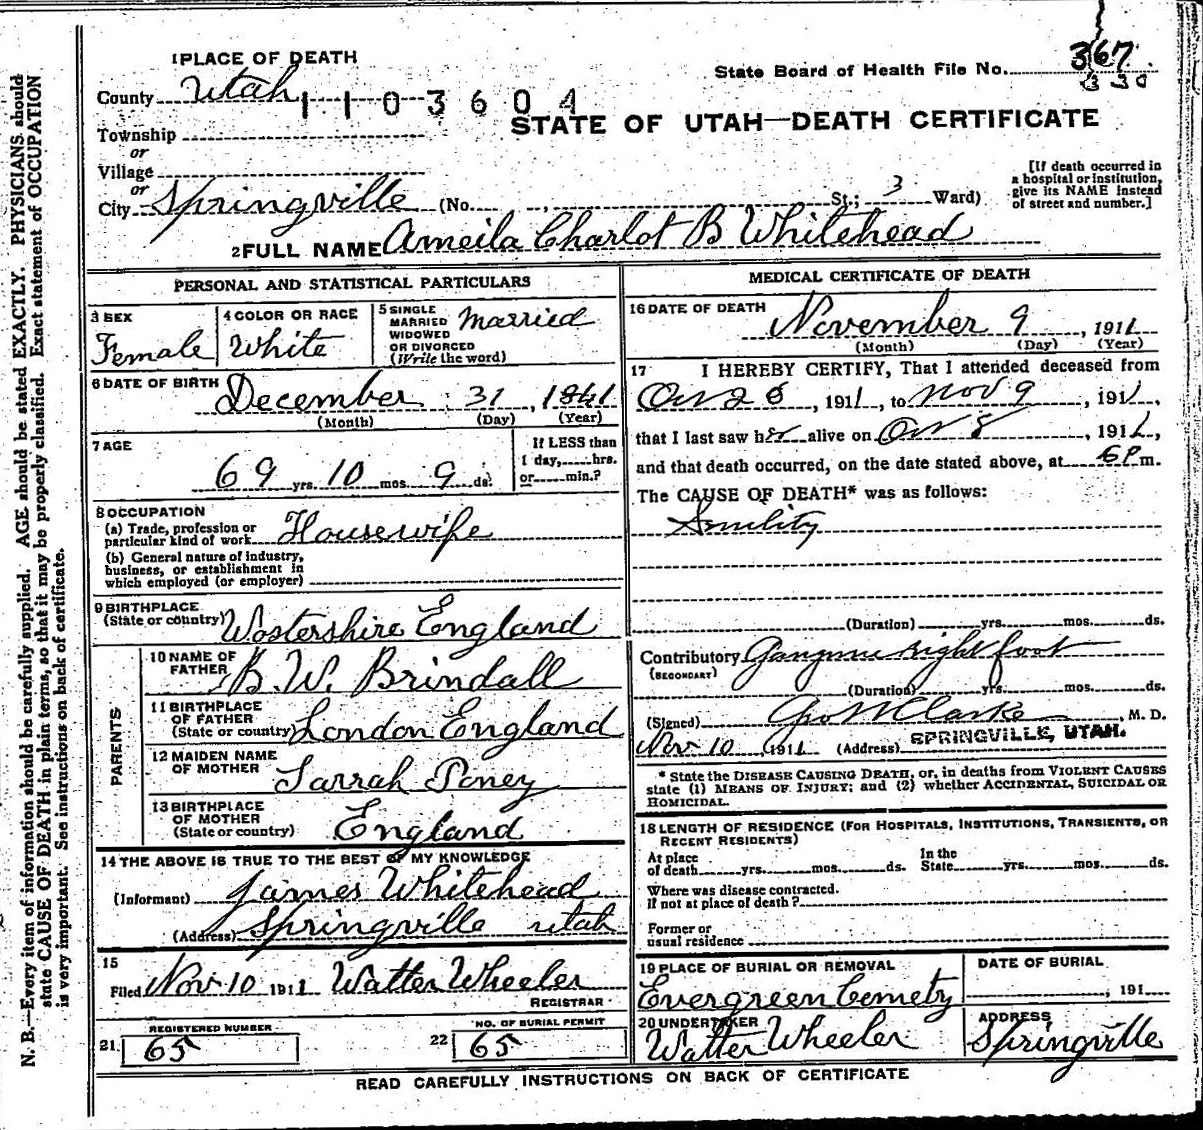 1 PLACE OF DEATH
County Utah
1103604
State Board of Health File No. 367
330
STATE OF UTAH—DEATH CERTIFICATE
Township
or
Village
or
City Springville (No. , St.; 3 Ward)
[If death occurred in
a hospital or institution,
give its NAME instead
of street and number.]
2 FULL NAME Ameila Charlot B Whitehead
PERSONAL AND STATISTICAL PARTICULARS
3 SEX
Female
4 COLOR OR RACE
White
5 SINGLE
MARRIED
WIDOWED
OR DIVORCED
(Write the word)
Married
6 DATE OF BIRTH December 31, 1841
(Month) (Day) (Year)
7 AGE
69 yrs. 10 mos. 9 ds.
If LESS than
1 day,.....hrs.
or.....min.?
8 OCCUPATION
(a) Trade, profession or
particular kind of work Housewife
(b) General nature of industry,
business, or establishment in
which employed (or employer)
9 BIRTHPLACE
(State or country) Wostershire England
PARENTS
10 NAME OF
FATHER B. W. Brindall
11 BIRTHPLACE
OF FATHER
(State or country) London England
12 MAIDEN NAME
OF MOTHER Sarrah Poney
13 BIRTHPLACE
OF MOTHER
(State or country) England
14 THE ABOVE IS TRUE TO THE BEST OF MY KNOWLEDGE
(Informant) James Whitehead
(Address) Springville Utah
15
Filed Nov 10 1911 Walter Wheeler
REGISTRAR
REGISTERED NUMBER
21. 65
NO. OF BURIAL PERMIT
22 65
MEDICAL CERTIFICATE OF DEATH
16 DATE OF DEATH
November 9, 1911
(Month) (Day) (Year)
17 I HEREBY CERTIFY, That I attended deceased from
, 1911, to Nov 9, 1911,
that I last saw her alive on 8, 1911,
and that death occurred, on the date stated above, at 6 P m.
The CAUSE OF DEATH* was as follows:
Senility
(Duration) yrs. mos. ds.
Contributory Gangrene right foot
(SECONDARY)
(Duration) yrs. mos. ds.
(Signed) Geo Clarke, M. D.
Nov 10 1911 (Address) SPRINGVILLE, UTAH.
* State the DISEASE CAUSING DEATH, or, in deaths from VIOLENT CAUSES
state (1) MEANS OF INJURY; and (2) whether ACCIDENTAL, SUICIDAL OR
HOMICIDAL.
18 LENGTH OF RESIDENCE (FOR HOSPITALS, INSTITUTIONS, TRANSIENTS, OR
RECENT RESIDENTS)
At place
of death yrs. mos. ds.
In the
State yrs. mos. ds.
Where was disease contracted.
if not at place of death?
Former or
usual residence
19 PLACE OF BURIAL OR REMOVAL
Evergreen Cemety
DATE OF BURIAL
, 191
20 UNDERTAKER
Walter Wheeler
ADDRESS
Springville
READ CAREFULLY INSTRUCTIONS ON BACK OF CERTIFICATE
N. B.—Every item of information should be carefully supplied. AGE should be stated EXACTLY. PHYSICIANS should
state CAUSE OF DEATH in plain terms, so that it may be properly classified. Exact statement of OCCUPATION
is very important. See instructions on back of certificate.